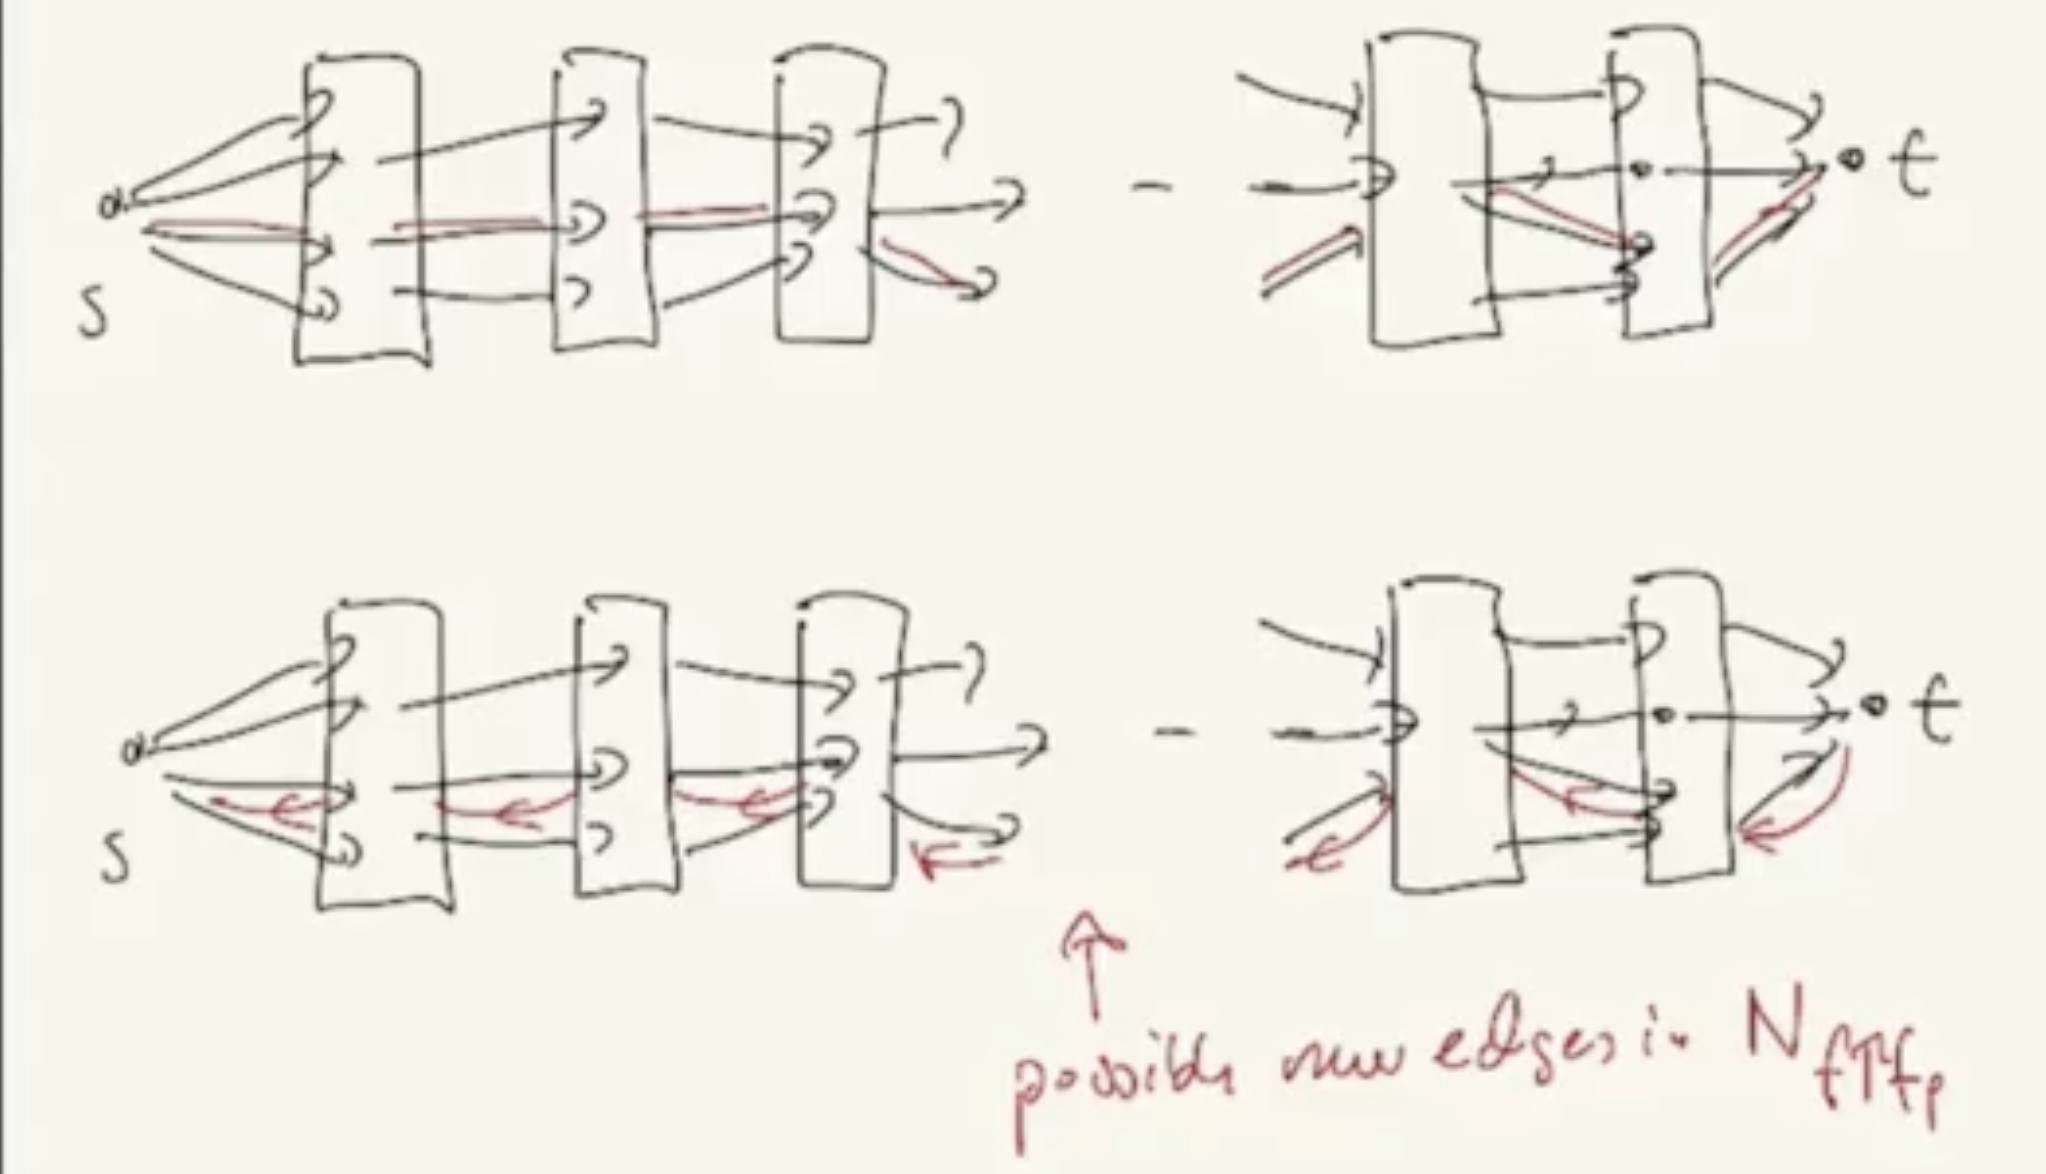 t
s
t
s
possible new edges in N f↑f_p